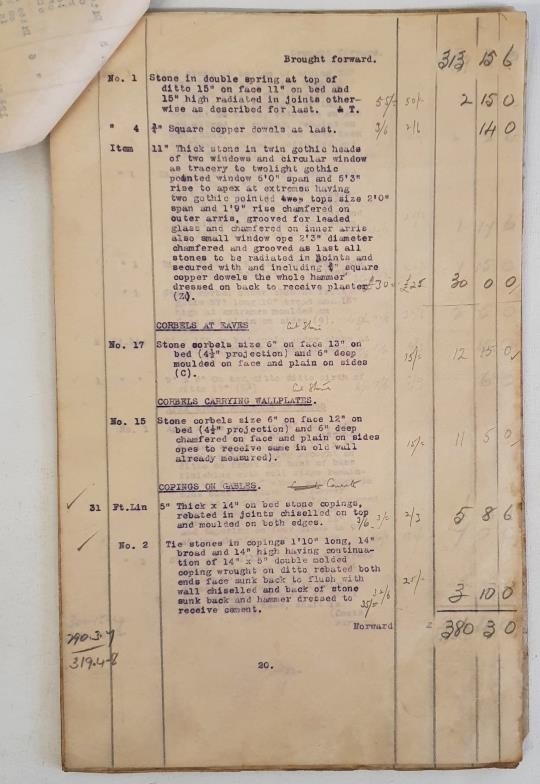 Brought forward. 313 15 6
No. 1 Stone in double spring at top of
ditto 15" on face 11" on bed and
15" high radiated in joints other-
wise as described for last. & T. 55/= 50/- 2 15 0
" 4 ¾" Square copper dowels as last. 3/6 2/6 14 0
Item 11" Thick stone in twin gothic heads
of two windows and circular window
as tracery to twolight gothic
pointed window 6'0" span and 5'3"
rise to apex at extremes having
two gothic pointed tops size 2'0"
span and 1'9" rise chamfered on
outer arris, grooved for leaded
glass and chamfered on inner arris
also small window ope 2'3" diameter
chamfered and grooved as last all
stones to be radiated in joints and
secured with and including ¾" square
copper dowels the whole hammer
dressed on back to receive plaster £30= £25 30 0 0
(Z).
CORBELS AT EAVES Cut Stone
No. 17 Stone corbels size 6" on face 13" on
bed (4½" projection) and 6" deep 15/= 12 15 0
moulded on face and plain on sides
(C).
Cut Stone
CORBELS CARRYING WALLPLATES.
No. 15 Stone corbels size 6" on face 12" on
bed (4½" projection) and 6" deep
chamfered on face and plain on sides 15/= 11 5 0
opes to receive same in old wall
already measured).
COPINGS ON GABLES.
31 Ft.Lin 5" Thick x 14" on bed stone copings,
rebated in joints chiselled on top
and moulded on both edges. 3/6 2/3 5 8 6
No. 2 Tie stones in copings 1'10" long, 14"
broad and 14" high having continua-
tion of 14" x 5" double molded
coping wrought on ditto rebated both
ends face sunk back to flush with
wall chiselled and back of stone 25/-
sunk back and hammer dressed to 35/= 3 10 0
receive cement.
Forward 380 3 0
290.3.7
319.4.8
20.